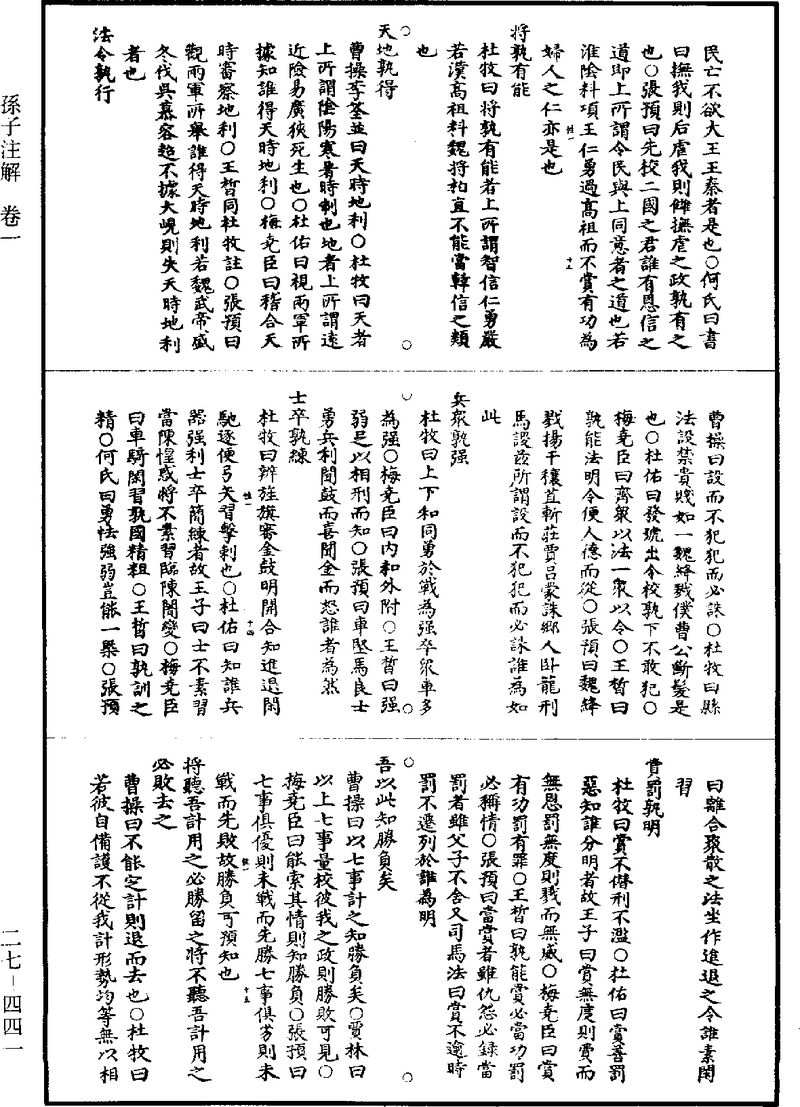 孫子注解　卷一
民亡不欲大王王秦者是也○何氏曰書
曰撫我則后虐我則讎撫虐之政孰有之
也○張預曰先校二國之君誰有恩信之
道即上所謂令民與上同意者之道也若
淮陰料項王仁勇過高祖而不賞有功為
婦人之仁亦是也
將孰有能
杜牧曰將孰有能者上所謂智信仁勇嚴
若漢高祖料魏將柏直不能當韓信之類
也
天地孰得
曹操李筌並曰天時地利○杜牧曰天者
上所謂陰陽寒暑時制也地者上所謂遠
近險易廣狹死生也○杜佑曰視兩軍所
據知誰得天時地利○梅堯臣曰稽合天
時審察地利○王晳同杜牧註○張預曰
觀兩軍所舉誰得天時地利若魏武帝盛
冬伐吳慕容超不據大峴則失天時地利
者也
法令孰行
曹操曰設而不犯犯而必誅○杜牧曰縣
法設禁貴賤如一魏絳戮僕曹公斷髮是
也○杜佑曰發號出令校孰下不敢犯○
梅堯臣曰齊衆以法一衆以令○王晳曰
孰能法明令便人德而從○張預曰魏絳
戮揚干穰苴斬莊賈呂蒙誅鄉人臥龍刑
馬謖茲所謂設而不犯犯而必誅誰為如
此
兵衆孰强
杜牧曰上下和同勇於戰為强卒衆車多
為强○梅堯臣曰內和外附○王晳曰强
弱足以相刑而知○張預曰車堅馬良士
勇兵利聞鼓而喜聞金而怒誰者為然
士卒孰練
杜牧曰辨旌旗審金鼓明開合知進退閑
馳逐便弓矢習擊刺也○杜佑曰知誰兵
器强利士卒簡練者故王子曰士不素習
當陳惶惑將不素習臨陳闇變○梅堯臣
曰車騎閑習孰國精粗○王晳曰孰訓之
精○何氏曰勇怯強弱豈能一槩○張預
曰離合聚散之法坐作進退之令誰素閑
習
賞罰孰明
杜牧曰賞不僭刑不濫○杜佑曰賞善罰
惡知誰分明者故王子曰賞無度則費而
無恩罰無度則戮而無威○梅堯臣曰賞
有功罰有罪○王晳曰孰能賞必當功罰
必稱情○張預曰當賞者雖仇怨必錄當
罰者雖父子不舍又司馬法曰賞不逾時
罰不遷列於誰為明
吾以此知勝負矣
曹操曰以七事計之知勝負矣○賈林曰
以上七事量校彼我之政則勝敗可見○
梅堯臣曰能索其情則知勝負○張預曰
七事俱優則未戰而先勝七事俱劣則未
戰而先敗故勝負可預知也
將聽吾計用之必勝留之將不聽吾計用之
必敗去之
曹操曰不能定計則退而去也○杜牧曰
若彼自備護不從我計形勢均等無以相
二七－四四一